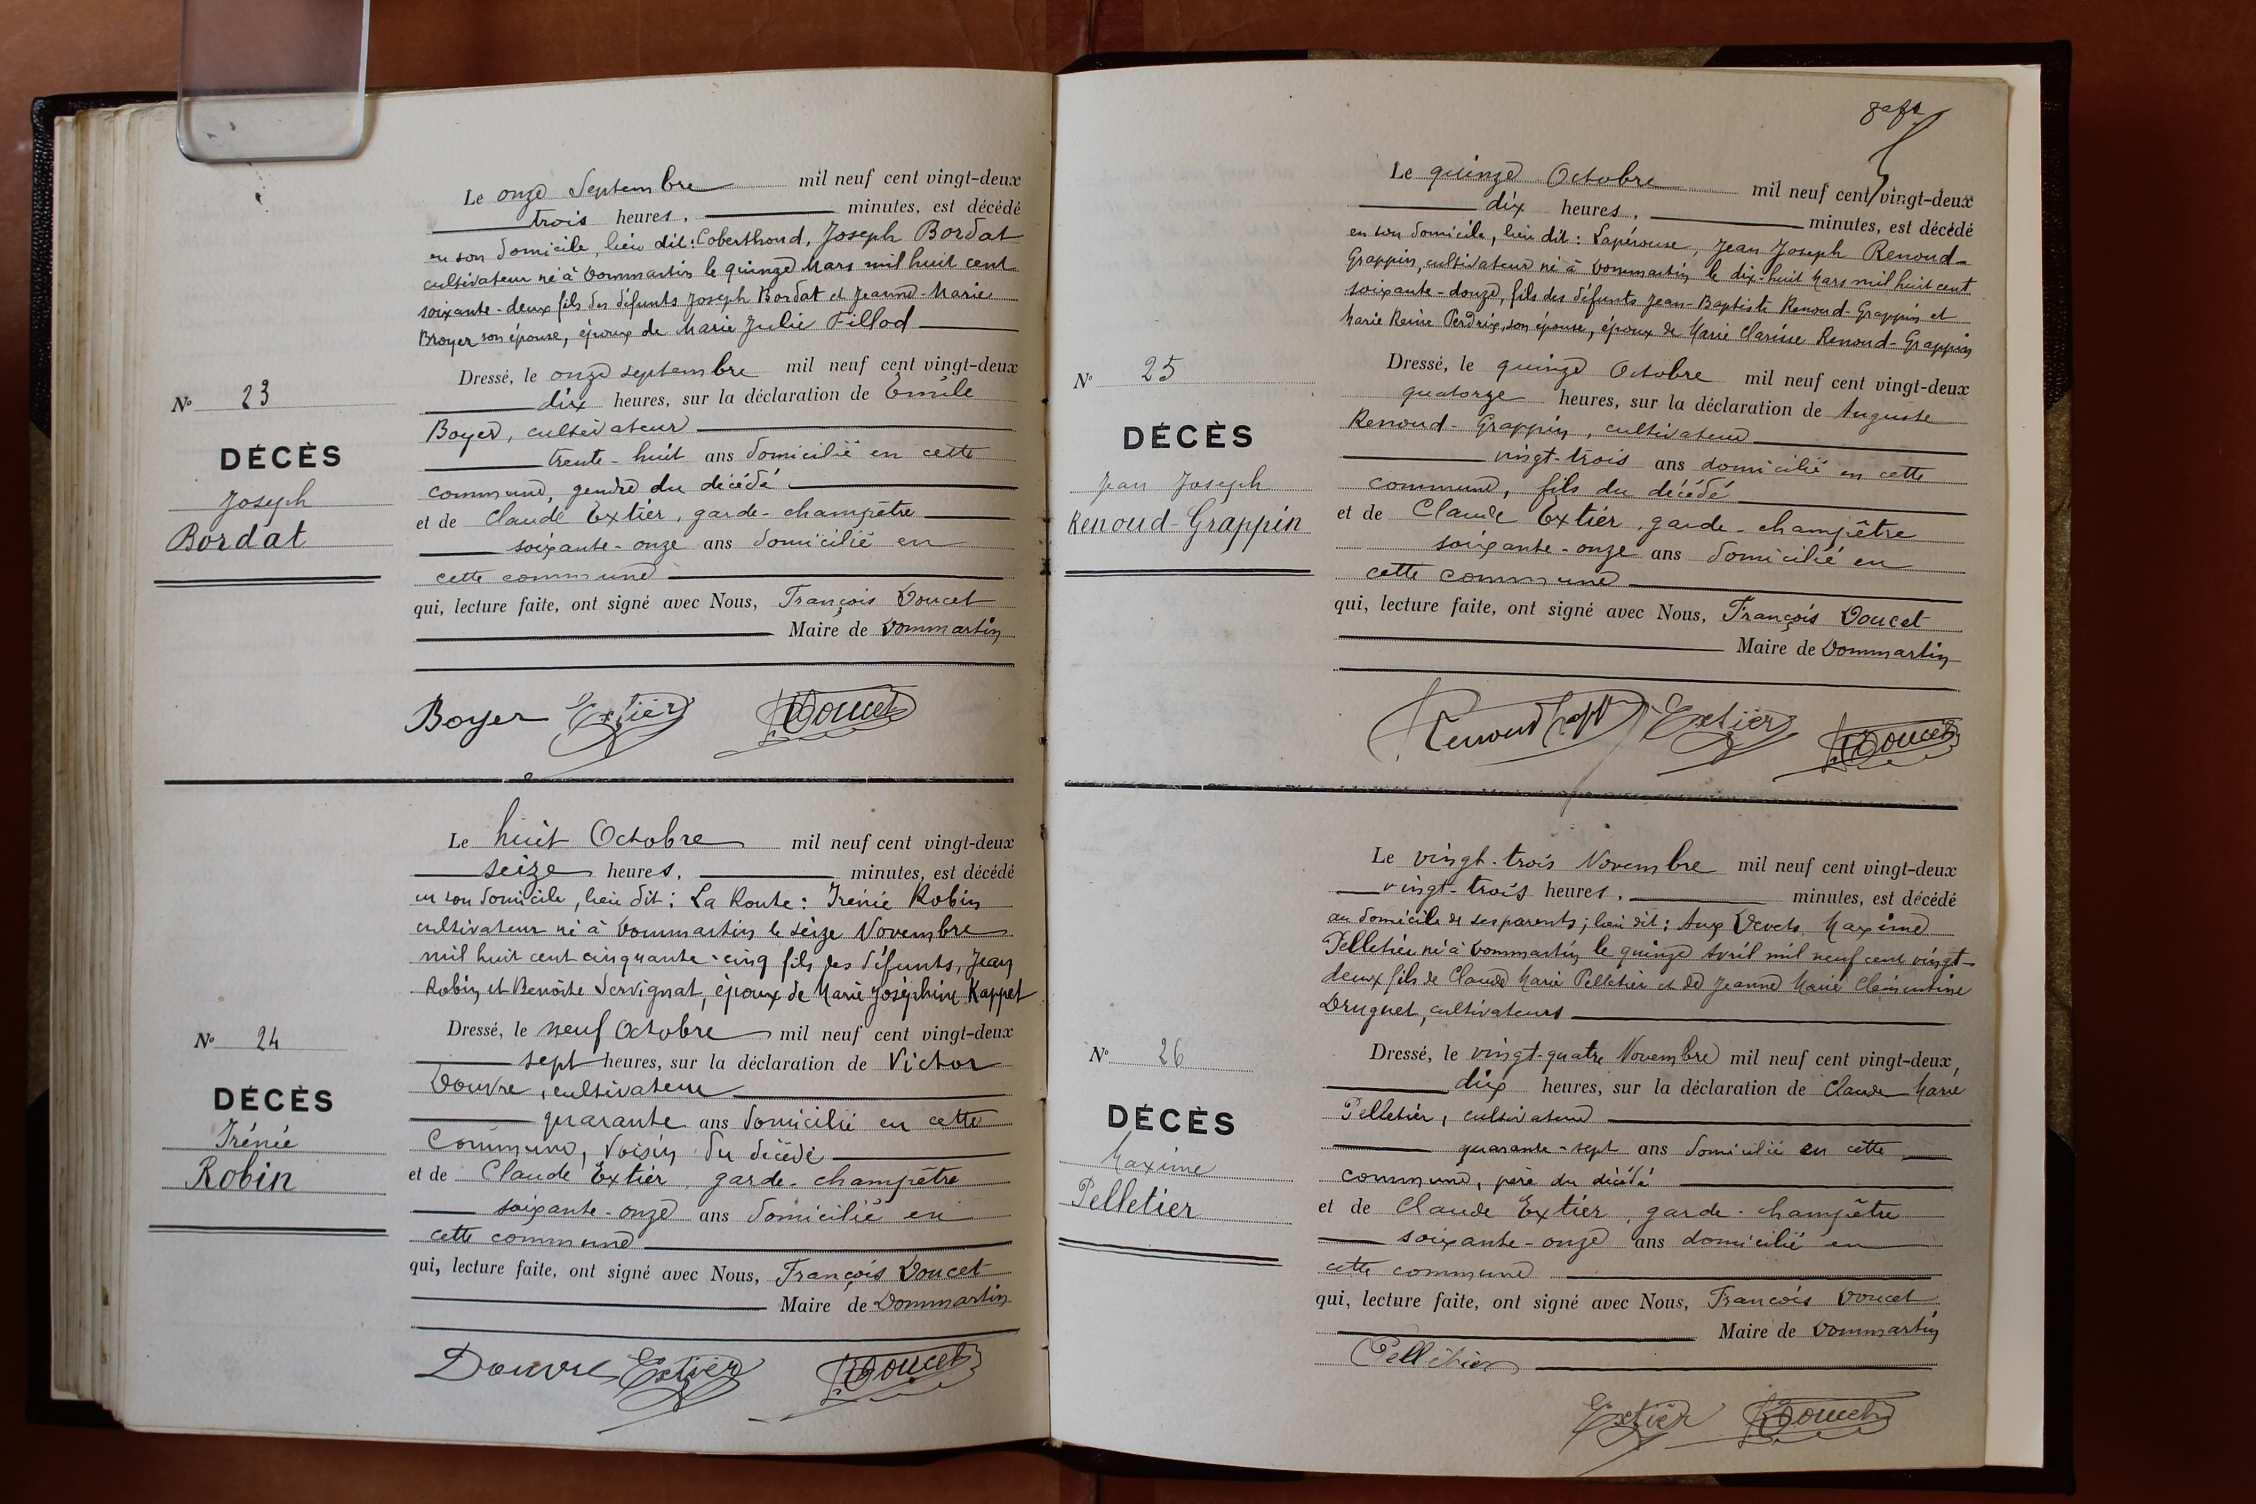 Le onze Septembre mil neuf cent vingt-deux
trois heures, minutes, est décédé
en son domicile, lieu dit: Coberthoud, Joseph Bordat
cultivateur né à Dommartin le quinze Mars mil huit cent
soixante-deux fils des défunts Joseph Bordat et Jeanne-Marie
Broyer son épouse, époux de Marie Julie Fillod
Nº 23
DÉCÈS
Joseph
Bordat
Dressé, le onze septembre mil neuf cent vingt-deux
dix heures, sur la déclaration de Emile
Boyer, cultivateur
trente-huit ans domicilié en cette
commune, gendre du décédé
et de Claude Extier, garde-champêtre
soixante-onze ans domicilié en
cette commune
qui, lecture faite, ont signé avec Nous, François Doucet
Maire de Dommartin
Boyer Extier Doucet
Le huit Octobre mil neuf cent vingt-deux
seize heures, minutes, est décédé
en son domicile, lieu dit: La Route: Irénée Robin
cultivateur né à Dommartin le seize Novembre
mil huit cent cinquante-cinq fils des défunts, Jean
Robin et Benoîte Servignat, époux de Marie Joséphine Kappet
Nº 24
DÉCÈS
Irénée
Robin
Dressé, le neuf Octobre mil neuf cent vingt-deux
sept heures, sur la déclaration de Victor
Douvre, cultivateur
quarante ans domicilié en cette
Commune, voisin du décédé
et de Claude Extier, garde-champêtre
soixante-onze ans domicilié en
cette commune
qui, lecture faite, ont signé avec Nous, François Doucet
Maire de Dommartin
Douvre Extier Doucet
Le quinze Octobre mil neuf cent vingt-deux
dix heures, minutes, est décédé
en son domicile, lieu dit: Lapérouse, Jean Joseph Renoud-
Grappin, cultivateur né à Dommartin le dix-huit Mars mil huit cent
soixante-douze, fils des défunts Jean-Baptiste Renoud-Grappin et
Marie Reine Perdrix, son épouse, époux de Marie Clarisse Renoud-Grappin
Nº 25
DÉCÈS
Jean Joseph
Renoud-Grappin
Dressé, le quinze Octobre mil neuf cent vingt-deux
quatorze heures, sur la déclaration de Auguste
Renoud-Grappin, cultivateur
vingt-trois ans domicilié en cette
commune, fils du décédé
et de Claude Extier, garde-champêtre
soixante-onze ans domicilié en
cette commune
qui, lecture faite, ont signé avec Nous, François Doucet
Maire de Dommartin
Renoud Extier Doucet
Le vingt-trois Novembre mil neuf cent vingt-deux
vingt-trois heures, minutes, est décédé
au domicile de ses parents; lieu dit: Aux Devets Maxime
Pelletier né à Dommartin le quinze Avril mil neuf cent vingt-
deux fils de Claude Marie Pelletier et de Jeanne Marie Clémentine
Druguet, cultivateurs
Nº 26
DÉCÈS
Maxime
Pelletier
Dressé, le vingt-quatre Novembre mil neuf cent vingt-deux,
dix heures, sur la déclaration de Claude Marie
Pelletier, cultivateur
quarante-sept ans domicilié en cette
commune, père du décédé
et de Claude Extier, garde-champêtre
soixante-onze ans domicilié en
cette commune
qui, lecture faite, ont signé avec Nous, François Doucet
Maire de Dommartin
Pelletier
Extier Doucet